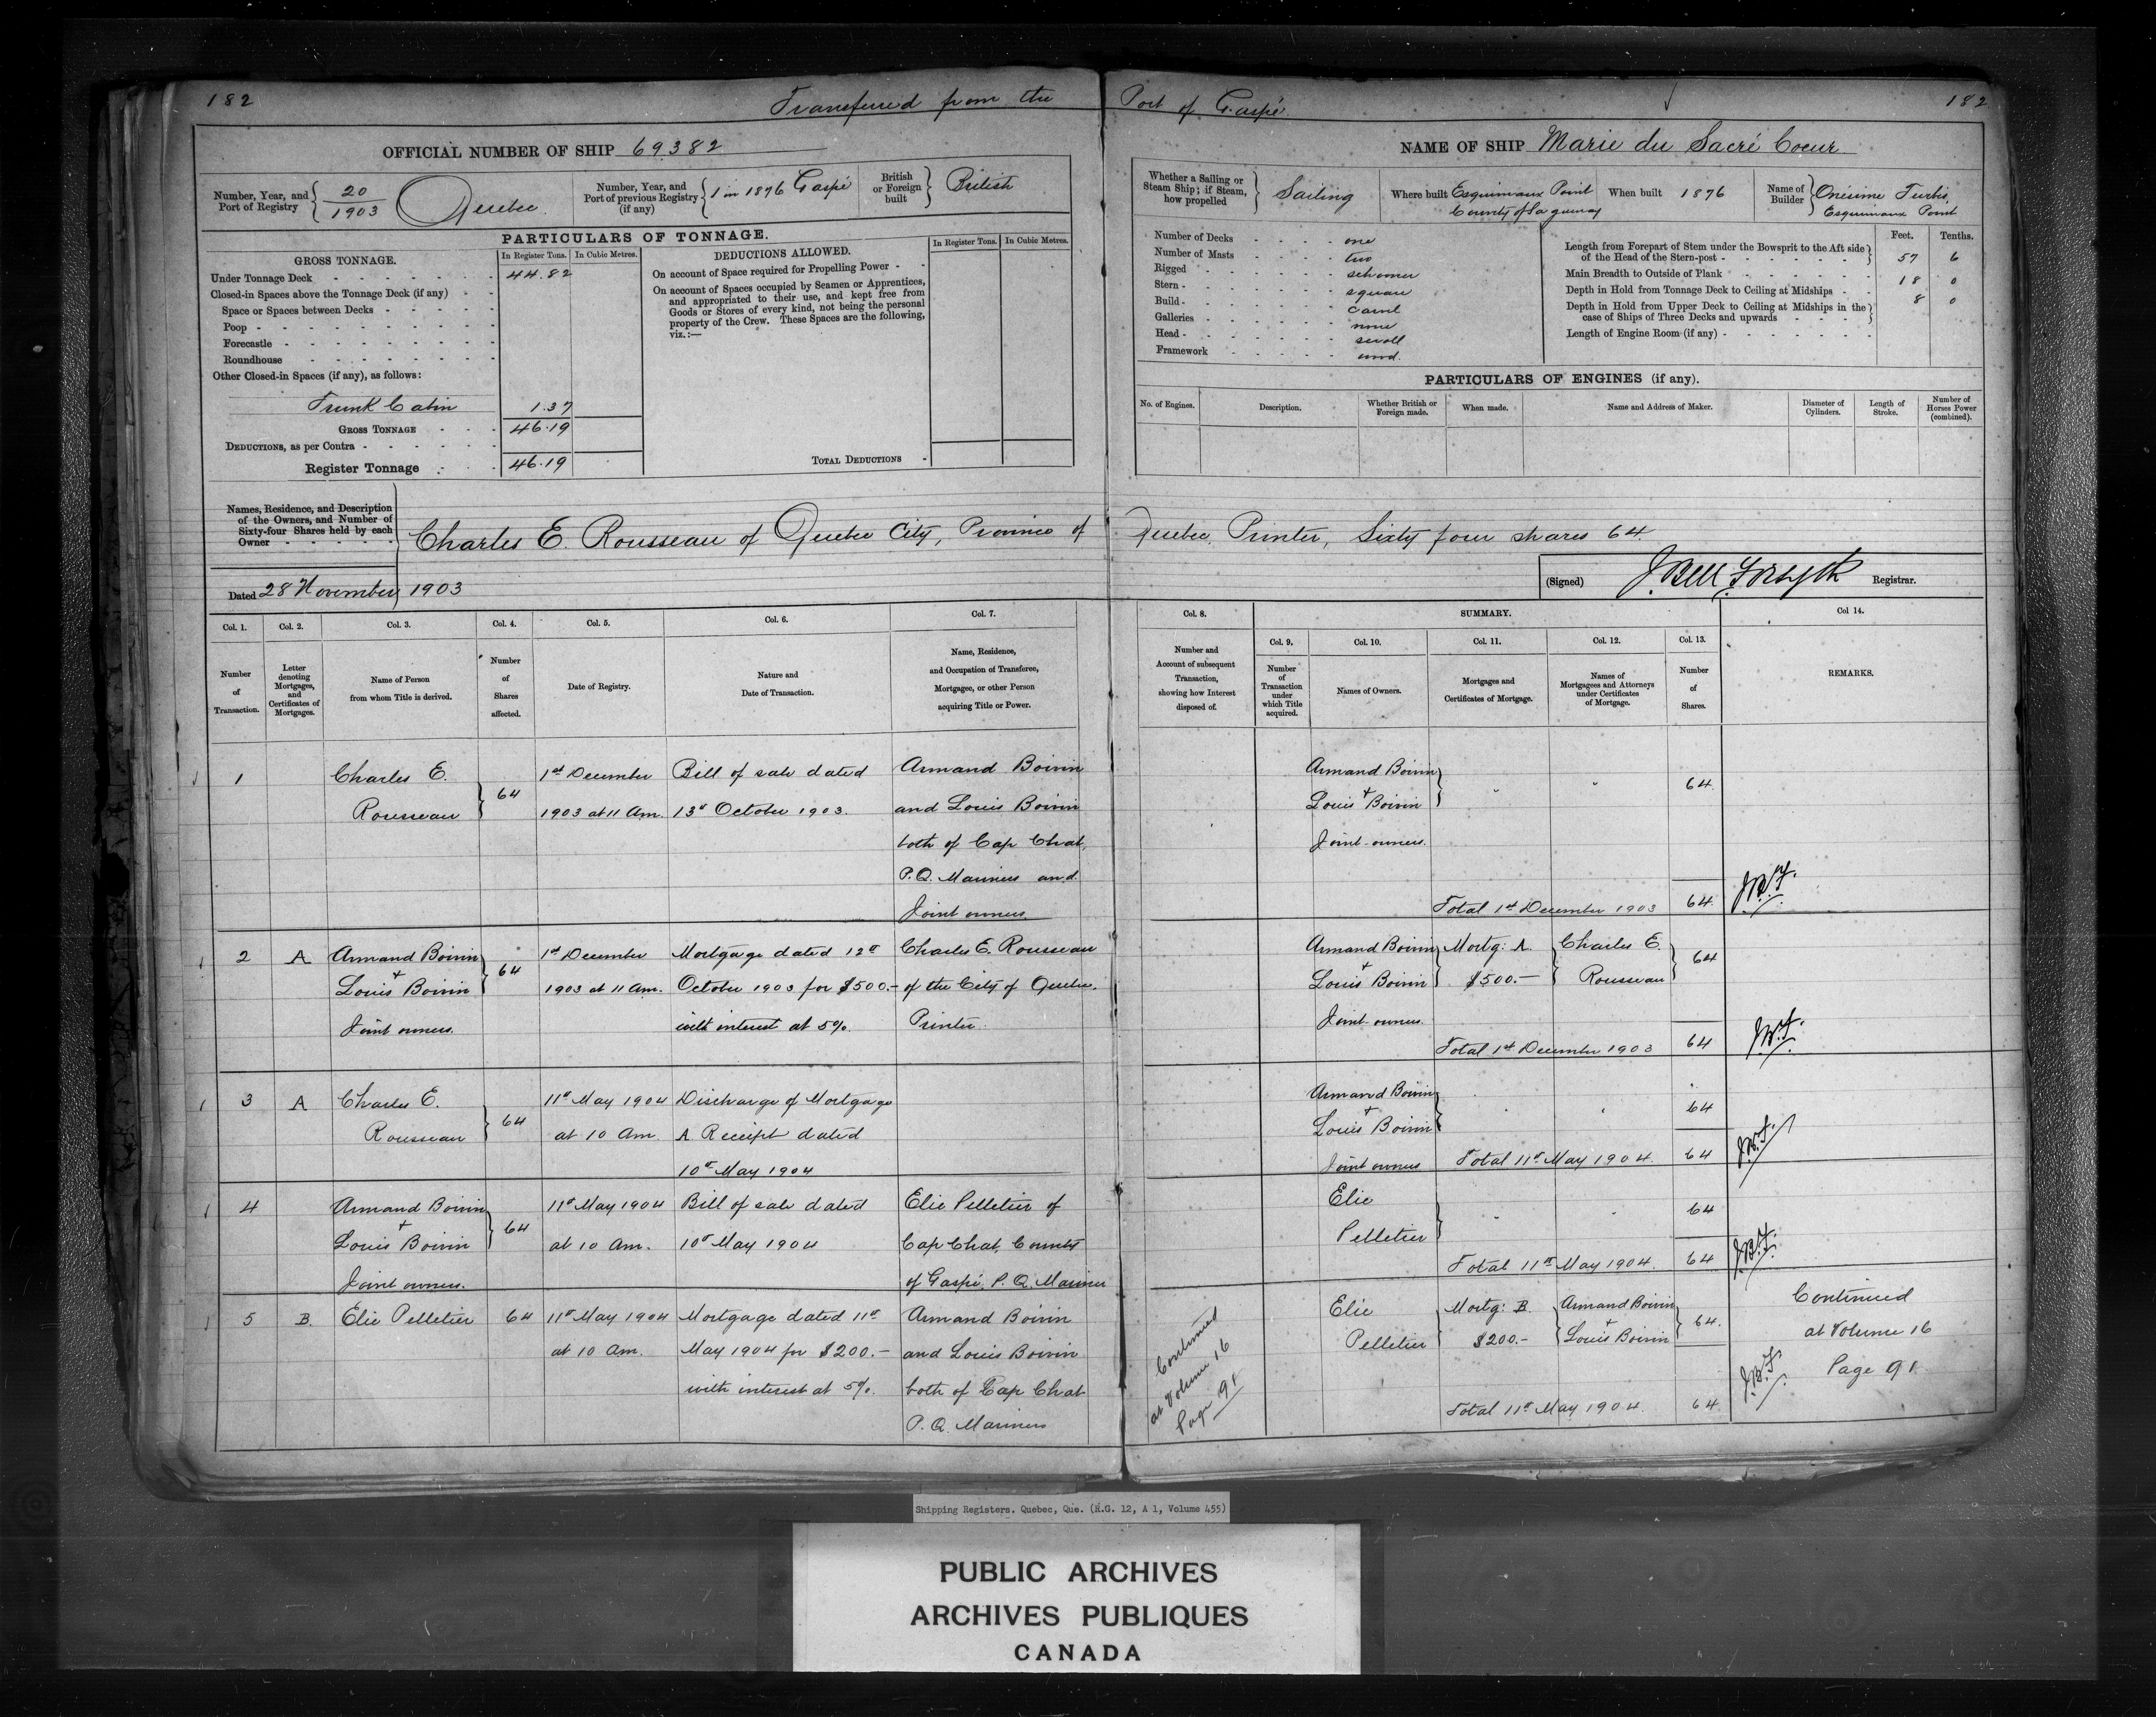 182
Transferred from the Port of Gaspé
182
OFFICIAL NUMBER OF SHIP 69382
NAME OF SHIP Marie du Sacré Coeur
Number, Year, and Port of Registry 20/1903 Quebec
Number, Year, and Port of previous Registry (if any) 1 in 1876 Gaspé
British or Foreign built British
Whether a Sailing or Steam Ship; if Steam, how propelled Sailing
Where built Esquimaux Point County of Saguenay
When built 1876
Name of Builder Onésime Turbis, Esquimaux Point
PARTICULARS OF TONNAGE.
GROSS TONNAGE.
In Register Tons. In Cubic Metres.
Under Tonnage Deck 44.82
Closed-in Spaces above the Tonnage Deck (if any)
Space or Spaces between Decks
Poop
Forecastle
Roundhouse
Other Closed-in Spaces (if any), as follows:
Trunk Cabin 1.37
GROSS TONNAGE 46.19
DEDUCTIONS, as per Contra
Register Tonnage 46.19
DEDUCTIONS ALLOWED.
In Register Tons. In Cubic Metres.
On account of Space required for Propelling Power
On account of Spaces occupied by Seamen or Apprentices,
and appropriated to their use, and kept free from
Goods or Stores of every kind, not being the personal
property of the Crew. These Spaces are the following,
viz.:—
TOTAL DEDUCTIONS
Number of Decks one
Number of Masts two
Rigged schooner
Stern square
Build carvel
Galleries none
Head scroll
Framework wood.
Feet. Tenths.
Length from Forepart of Stem under the Bowsprit to the Aft side of the Head of the Stern-post 57 6
Main Breadth to Outside of Plank 18 0
Depth in Hold from Tonnage Deck to Ceiling at Midships 8 0
Depth in Hold from Upper Deck to Ceiling at Midships in the case of Ships of Three Decks and upwards
Length of Engine Room (if any)
PARTICULARS OF ENGINES (if any).
No. of Engines. Description. Whether British or Foreign made. When made. Name and Address of Maker. Diameter of Cylinders. Length of Stroke. Number of Horses Power (combined).
Names, Residence, and Description of the Owners, and Number of Sixty-four Shares held by each Owner
Charles E. Rousseau of Quebec City, Province of Quebec, Printer, Sixty four shares 64.
Dated 28 November 1903
(Signed) J. Bell Forsyth Registrar.
Col. 1. Col. 2. Col. 3. Col. 4. Col. 5. Col. 6. Col. 7. Col. 8. SUMMARY. Col. 14.
Col. 9. Col. 10. Col. 11. Col. 12. Col. 13.
Number of Transaction.
Letter denoting Mortgages, and Certificates of Mortgages.
Name of Person from whom Title is derived.
Number of Shares affected.
Date of Registry.
Nature and Date of Transaction.
Name, Residence, and Occupation of Transferee, Mortgagee, or other Person acquiring Title or Power.
Number and Account of subsequent Transaction, showing how Interest disposed of.
Number of Transaction under which Title acquired.
Names of Owners.
Mortgages and Certificates of Mortgage.
Names of Mortgagees and Attorneys under Certificates of Mortgage.
Number of Shares.
REMARKS.
1
Charles E.
Rousseau
64
1st December
1903 at 11 Am.
Bill of sale dated
13th October 1903.
Armand Boivin
and Louis Boivin
both of Cap Chat,
P.Q. Mariners and
Joint owners
Armand Boivin
+
Louis Boivin
Joint owners.
64.
Total 1st December 1903 64.
J.B.F.
2 A
Armand Boivin
+
Louis Boivin
Joint owners.
64
1st December
1903 at 11 Am.
Mortgage dated 12th
October 1903 for $500.-
with interest at 5%.
Charles E. Rousseau
of the City of Quebec.
Printer.
Armand Boivin
+
Louis Boivin
Joint owners.
Mortg: A.
$500.—
Charles E.
Rousseau
64
Total 1st December 1903 64
J.B.F.
3 A
Charles E.
Rousseau
64
11th May 1904
at 10 Am.
Discharge of Mortgage
A Receipt dated
10th May 1904
Armand Boivin
+
Louis Boivin
Joint owners
64
Total 11th May 1904. 64
J.B.F.
4
Armand Boivin
+
Louis Boivin
Joint owners.
64
11th May 1904
at 10 Am.
Bill of sale dated
10th May 1904
Elie Pelletier of
Cap Chat, County
of Gaspé, P.Q. Mariner
Elie
Pelletier
64
Total 11th May 1904. 64
J.B.F.
5 B.
Elie Pelletier
64
11th May 1904
at 10 Am.
Mortgage dated 11th
May 1904 for $200.—
with interest at 5%.
Armand Boivin
and Louis Boivin
both of Cap Chat
P.Q. Mariners
Continued
at Volume 16
Page 91
Elie
Pelletier
Mortg: B.
$200.-
Armand Boivin
+
Louis Boivin
64.
Total 11th May 1904. 64
J.B.F.
Continued
at Volume 16
Page 91
Shipping Registers. Quebec, Que. (R.G. 12, A 1, Volume 455)
PUBLIC ARCHIVES
ARCHIVES PUBLIQUES
CANADA